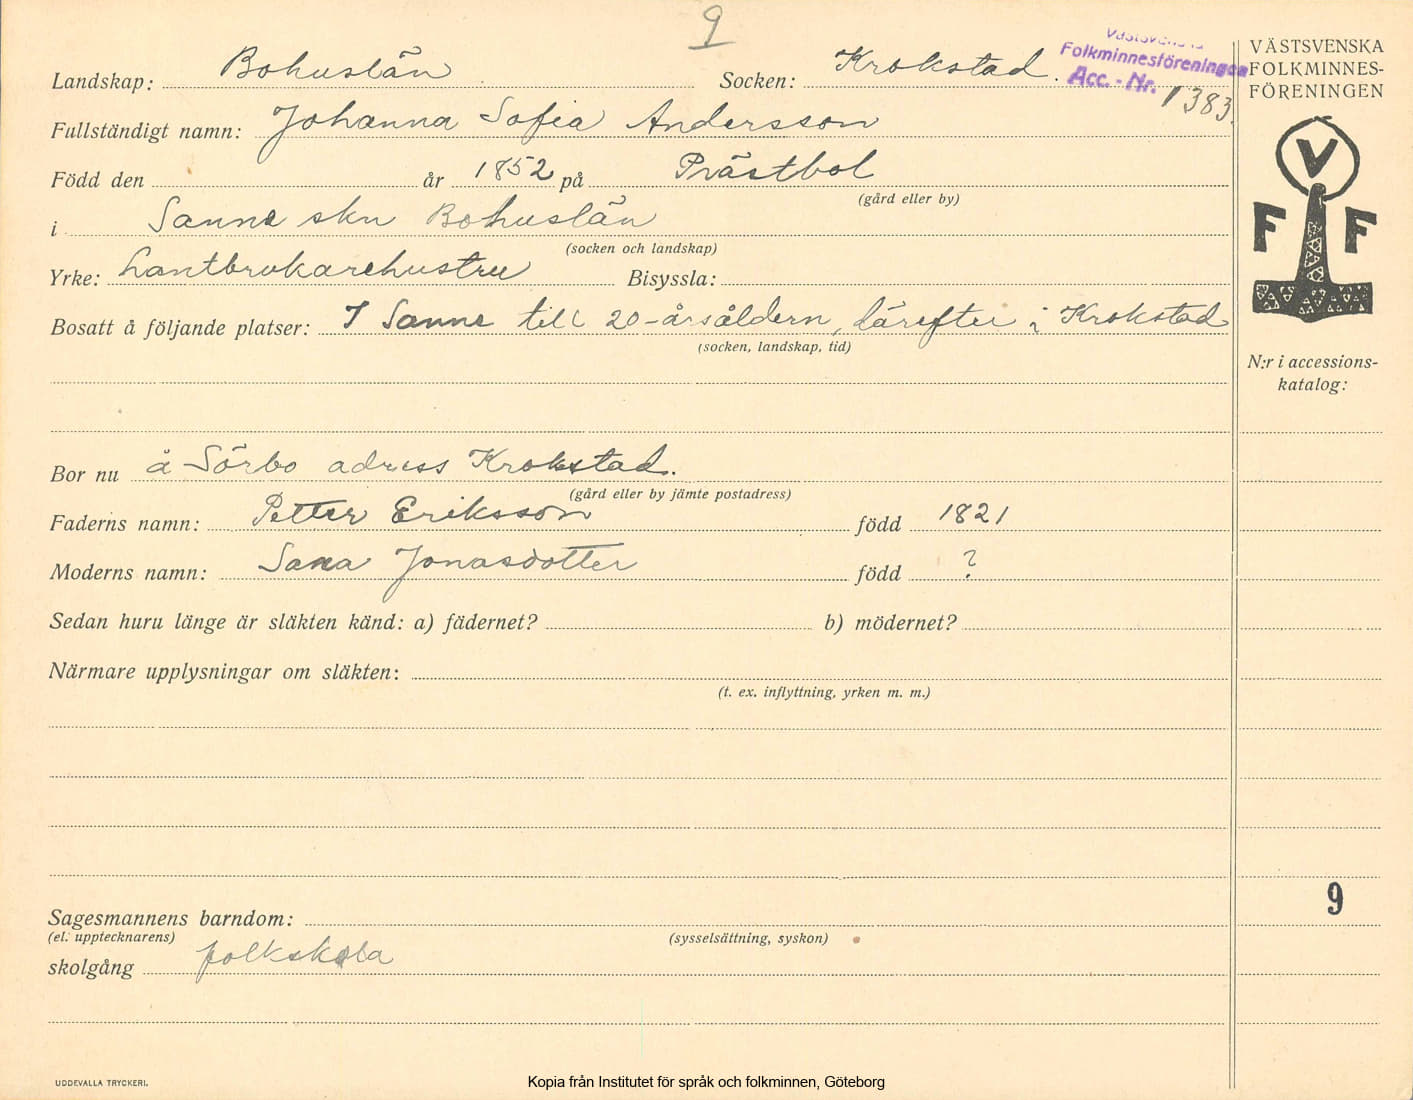 9
Landskap: Bohuslän Socken: Krokstad.
Västsvenska
Folkminnesföreningen
Acc. - Nr. 1383.
VÄSTSVENSKA
FOLKMINNES-
FÖRENINGEN
Fullständigt namn: Johanna Sofia Andersson
Född den år 1852 på Prästbol
(gård eller by)
i Sanne skn Bohuslän
(socken och landskap)
Yrke: Lantbrukarehustru Bisyssla:
Bosatt å följande platser: I Sanne till 20-årsåldern, därefter i Krokstad
(socken, landskap, tid)
V
F F
N:r i accessions-
katalog:
Bor nu å Sörbo adress Krokstad.
(gård eller by jämte postadress)
Faderns namn: Petter Eriksson född 1821
Moderns namn: Sara Jonasdotter född ?
Sedan huru länge är släkten känd: a) fädernet? b) mödernet?
Närmare upplysningar om släkten:
(t. ex. inflyttning, yrken m. m.)
9
Sagesmannens barndom:
(el. upptecknarens) (sysselsättning, syskon)
skolgång folkskola
UDDEVALLA TRYCKERI.
Kopia från Institutet för språk och folkminnen, Göteborg